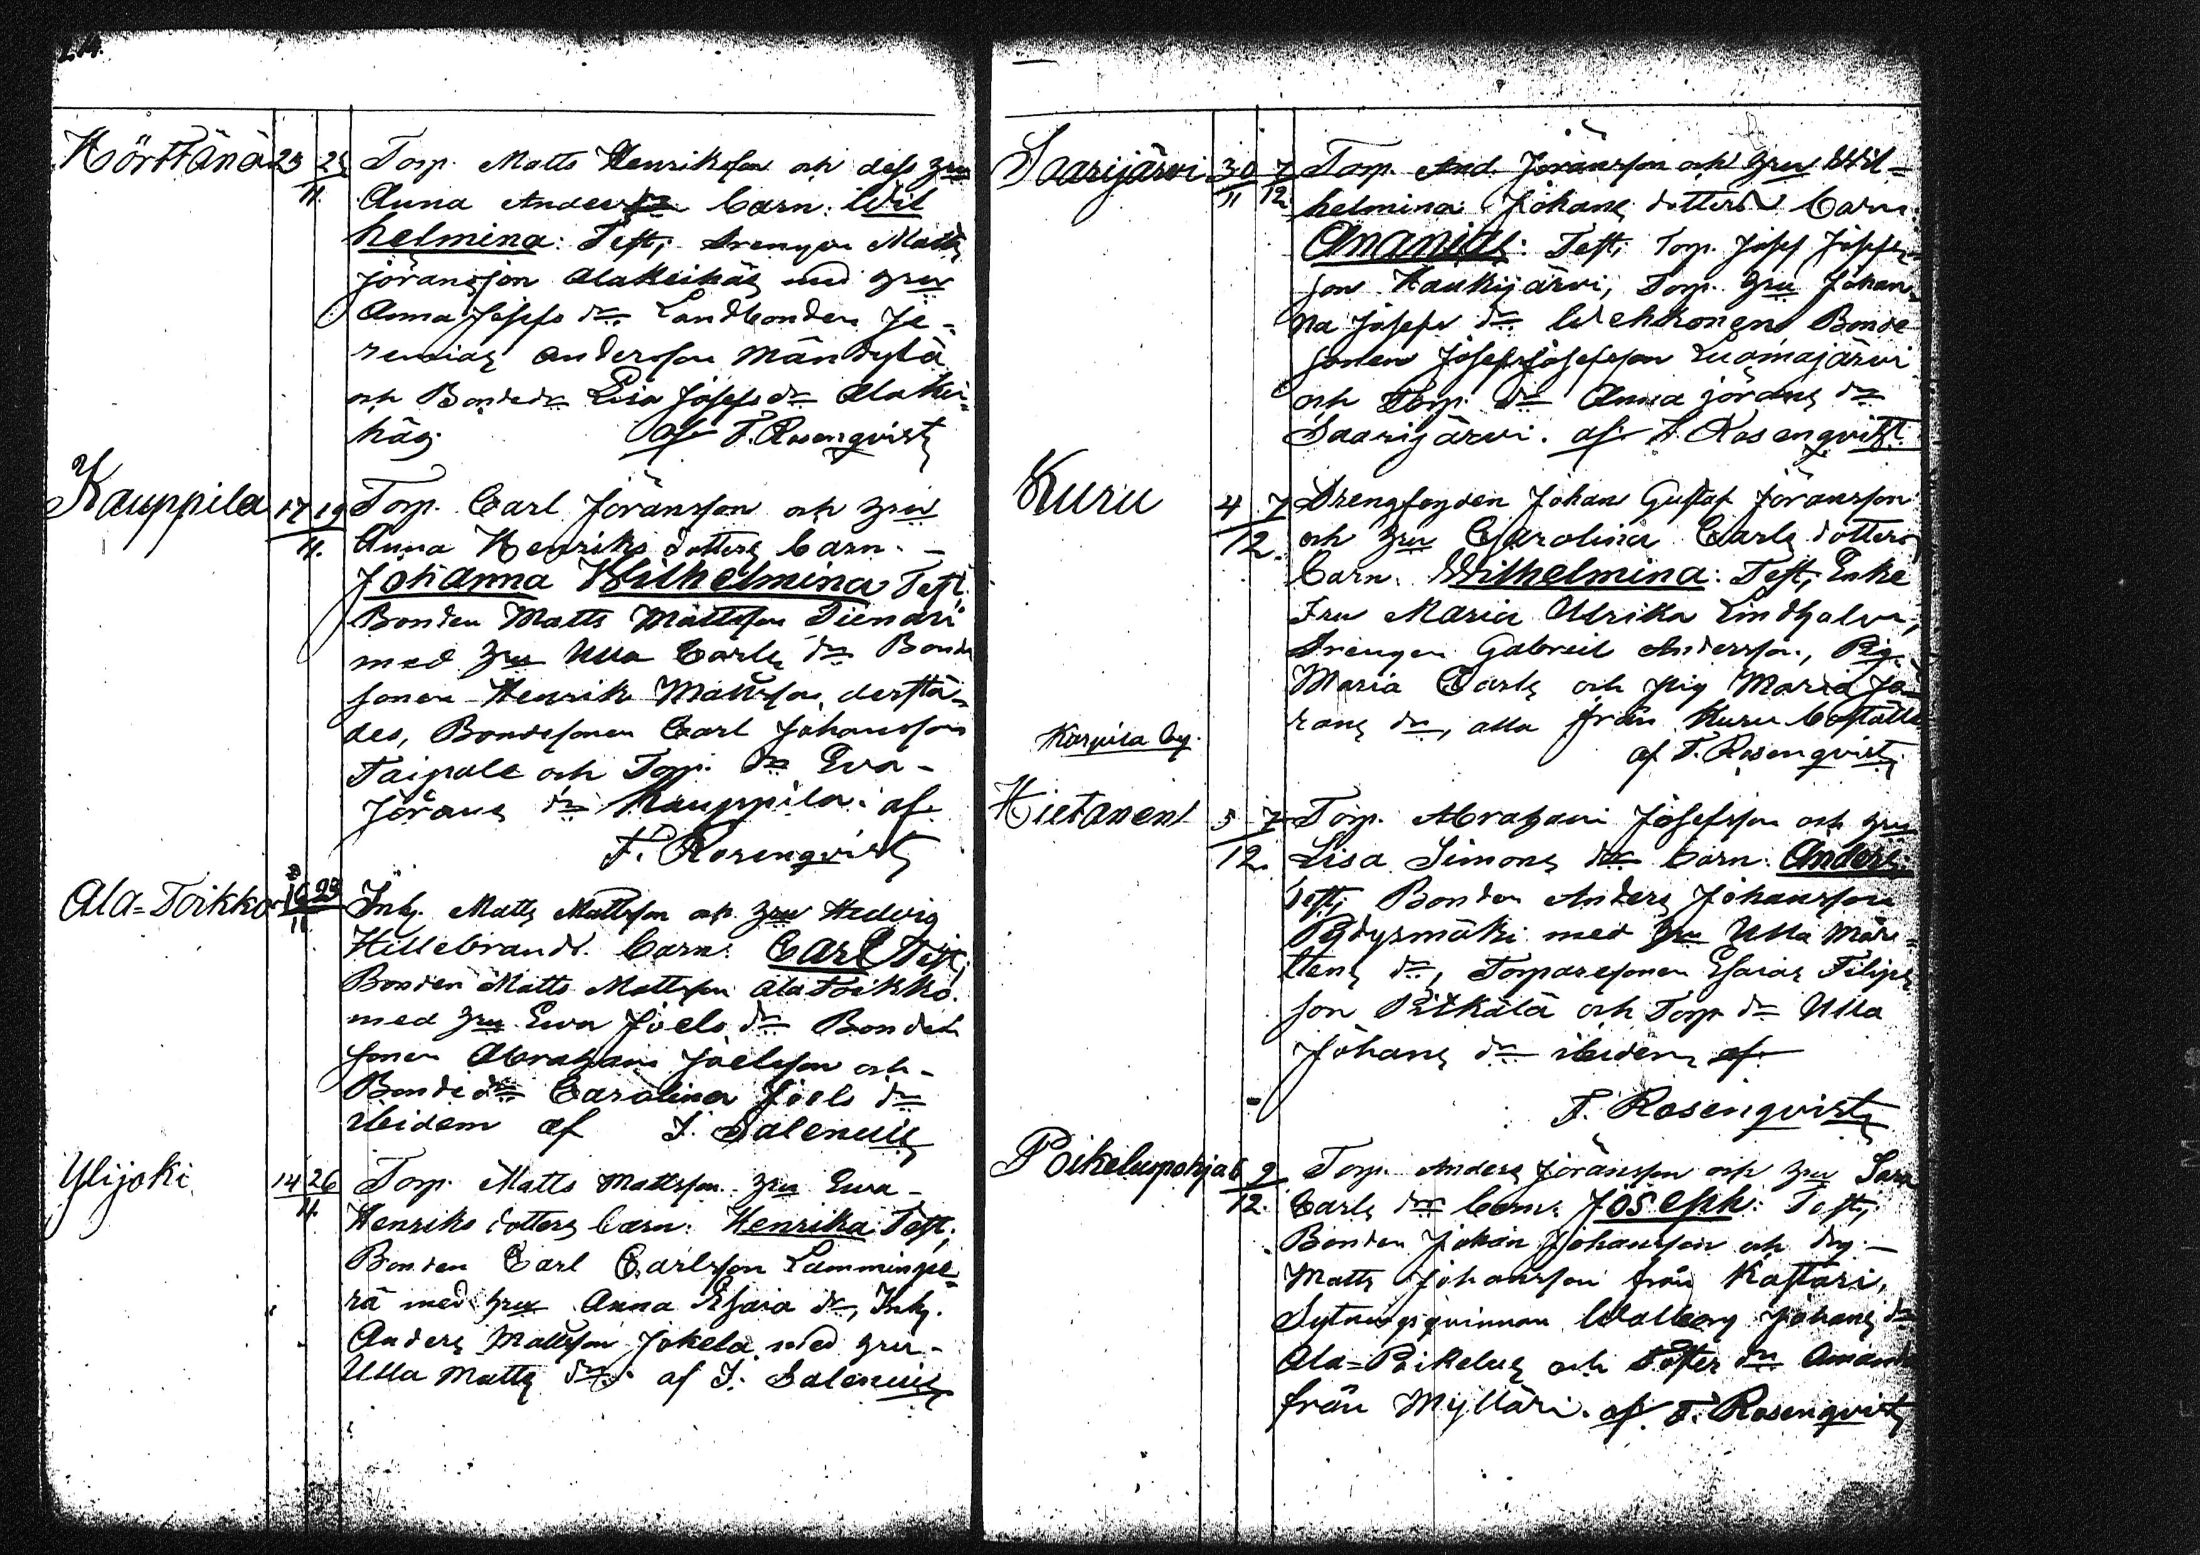 Körttänä 23 25 Torp. Matts Henriksson och dess hru
11. Anna Anders dr barn: Wil
helmina: Test; Drengen Matts
Jöransson Alakeihäs med hru
Anna Josefs dr. Landbonden Je-
remias Andersson Mäntylä
och Bonde dr Lisa Josefs dr Alakei-
häs. af F. Rosenqvist
Kauppila 17 19 Torp. Carl Jöransson och hru
11. Anna Henriks dotters barn. -
Johanna Wilhelmina Test;
Bonden Matts Mattsson Tiensri
med hru Ulla Carls dr Bonde
sonen Henrik Mattsson, derstä-
des, Bondesonen Carl Johansson
Taipale och Torp. dr Eva -
Jörans dr Kauppila. af
F. Rosenqvist
Ala-Toikko 16 23 Inh. Matts Mattsson och hru Hedvig
11 Hillebrandt. barn: Carl Test;
Bonden Matts Mattsson Ala Toikko.
med hru Ewa Joels dr Bonde
sonen Abraham Joelsson och -
Bonde dr Carolina Joels dr
ibidem af J. Salenius
Ylijoki 14 26 Torp. Matts Mattsson hru Ewa -
11. Henriks dotters barn: Henrika Test;
Bonden Carl Carlsson Lamminpe-
rä med hru Anna Esaia dr, Inh.
Anders Mattsson Jokela med hru -
Ulla Matts dr. af J. Salenius
Saarijärvi 30 7 Torp. And. Jöransson och hru Wil-
11 12. helmina Johans dotters barn
Ananias: Test; Torp. Josef Josefs-
son Haukijärvi, Torp. hru Johan-
na Josefs dr Wehkonen Bonde
sonen Josef Josefsson Luomajärvi
och Torp. dr Anna Jörans dr
Saarijärvi. af F. Rosenqvist.
Kuru 4 7 Drengfogden Johan Gustaf Jöransson
12. och hru Carolina Carls dotters
barn. Wilhelmina: Test; Enke
Fru Maria Ulrika Lindholm,
Drengen Gabriel Andersson, Pig.
Maria Carls och pig Maria Jö-
rans dr, alla från Kuru boställe
af F. Rosenqvist
Karvia by.
Hietanen 5 7 Torp. Abraham Josefsson och hru
12. Lisa Simons dr barn: Anders.
Test; Bonden Anders Johansson
Pydysmäki med hru Ulla Mår-
tens dr, Torparesonen Esaias Filips-
son Pitkälä och Torp dr Ulla
Johans dr ibidem af
F. Rosenqvist
Poikeluspohja 6 9 Torp. Anders Jöransson och hru Sara
12. Carls dr barn: Joseph: Test;
Bonden Johan Johansson och drg. -
Matts Johansson från Kastari,
Sytningsqvinnan Walborg Johans dr
Ala-Poikelus och dr Amanda
från Mylläri. af F. Rosenqvist